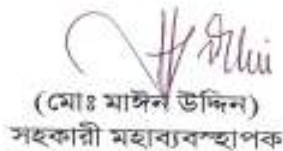 (মোঃ মাঈন উদ্দিন)
সহকারী মহাব্যবস্হাপক